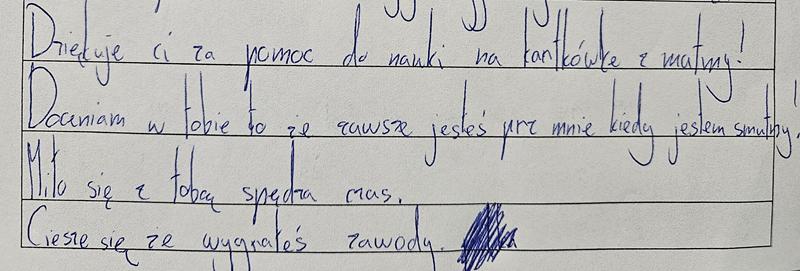 Dziękuje ci za pomoc do nauki na kantkówke z matmy!
Doceniam w tobie to ze zawsze jesteś prz mnie kiedy jestem smutny.
Miło się z tobą spędza czas.
Ciesze się ze wygrałeś zawody.